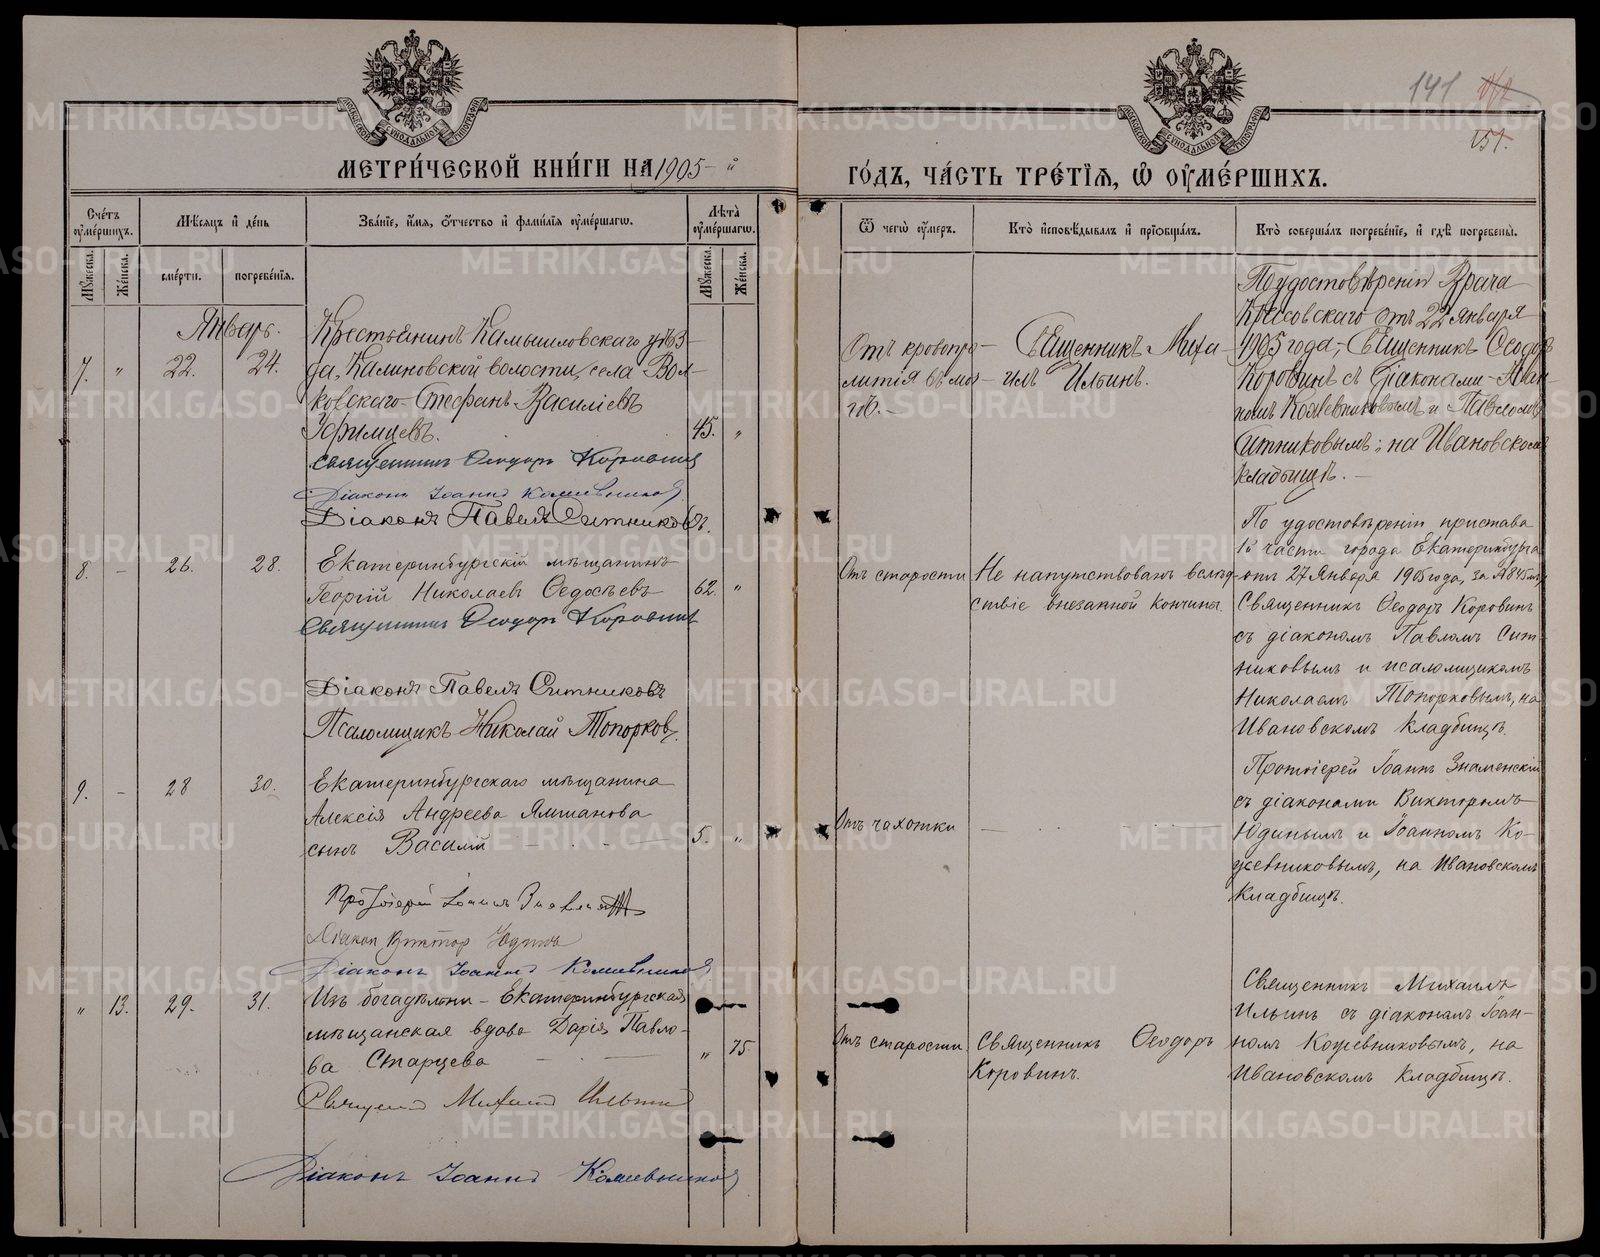 МЕТРИ́ЧЕСКОЙ КНИ́ГИ НА 1905-й
ГО́ДЪ, ЧА́СТЬ ТРЕ́ТІѦ, Ѿ ОУМЕ́РШИХЪ.
141
151.
Сче́тъ оумéршихъ.
Мѣсяцъ и де́нь
Зва́ніе, и́мя, о́тчество и фами́лія оумéршагѡ.
Лѣта̀ оумéршагѡ.
Ѿ чегѡ̀ оу́меръ.
Кто̀ исповѣ́дывалъ и пріѡбща́лъ.
Кто̀ соверша́лъ погребе́ніе, и гдѣ̀ погребены̀.
Мꙋжеска.
Же́нска.
сме́рти.
погребе́нія.
Мꙋжеска.
Же́нска.
Январь.
7.
"
22.
24.
Крестьянинъ Камышловскаго уѣз-
да, Калиновской волости, села Вол-
ковскаго Стефанъ Василіевъ
Ефимцевъ.
45.
"
Священникъ Ѳеодоръ Коровинъ
Діаконъ Іоаннъ Кожевниковъ
Діаконъ Павелъ Ситниковъ.
Отъ кровоизлі-
литія въ моз-
гѣ.-
Священникъ Миха-
илъ Ильинъ.
По удостовѣренію Врача
отъ 22 января
1905 года; Священникъ Ѳеодоръ
Коровинъ съ Діаконами-Іоан-
номъ Кожевниковымъ и Павломъ
Ситниковымъ; на Ивановскомъ
кладбищѣ.-
8.
-
26.
28.
Екатеринбургскій мѣщанинъ
Георгій Николаевъ Ѳедосѣевъ
62.
"
Священникъ Ѳеодоръ Коровинъ
Діаконъ Павелъ Ситниковъ
Псаломщикъ Николай Топорковъ.
Отъ старости
Не напутствованъ вслѣд-
ствіе внезапной кончины.
По удостовѣренію пристава
1й части города Екатеринбурга
отъ 27 Января 1905 года, за № 845мъ,
Священникъ Ѳеодоръ Коровинъ
съ діакономъ Павломъ Сит-
никовымъ и псаломщикомъ
Николаемъ Топорковымъ, на
Ивановскомъ кладбищѣ.
9.
-
28
30.
Екатеринбургскаго мѣщанина
Алексія Андреева Ямшанова
сынъ Василій
5.
"
Протоіерей Іоаннъ Знаменскій
Діаконъ Викторъ Юдинъ
Діаконъ Іоаннъ Кожевниковъ
Отъ чахотки
Протоіерей Іоаннъ Знаменскій
съ діаконами Викторомъ
Юдинымъ и Іоанномъ Ко-
жевниковымъ, на Ивановскомъ
кладбищѣ.
"
13.
29.
31.
Изъ богадѣльни - Екатеринбургская
мѣщанская вдова Дарія Павло-
ва Старцева
"
75.
Священникъ Михаилъ Ильинъ
Діаконъ Іоаннъ Кожевниковъ
Отъ старости.
Священникъ Ѳеодоръ
Коровинъ.
Священникъ Михаилъ
Ильинъ съ діакономъ Іоан-
номъ Кожевниковымъ, на
Ивановскомъ кладбищѣ.
METRIKI.GASO-URAL.RU